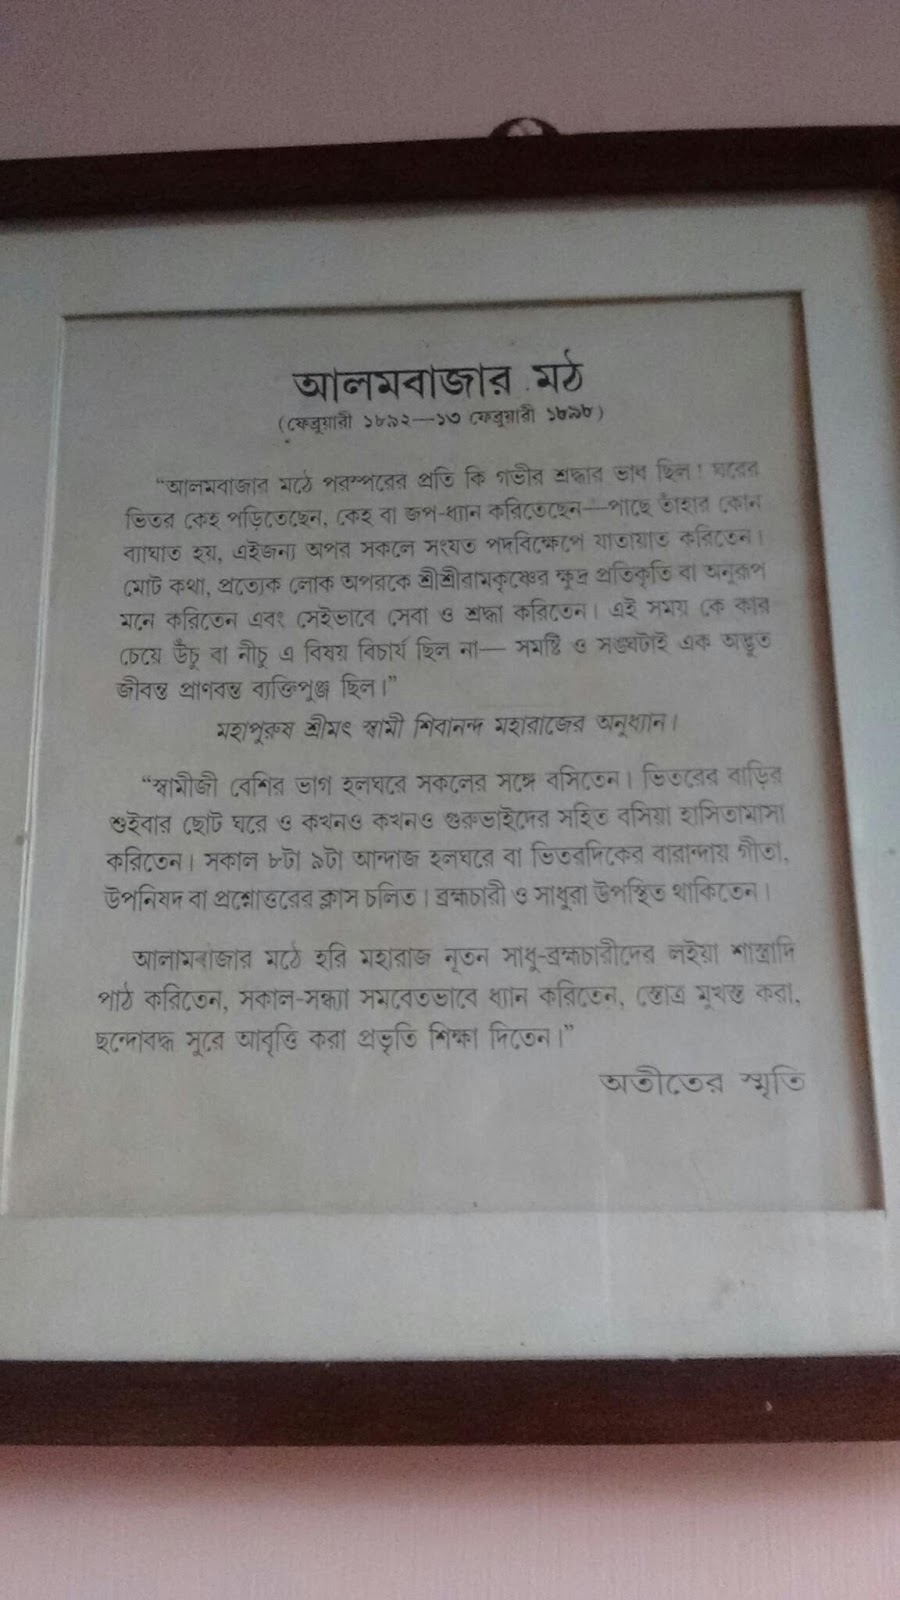 আলমবাজার মঠ
(ফেব্রুয়ারী ১৮৯২—১৩ ফেব্রুয়ারী ১৮৯৮)
“আলমবাজার মঠে পরস্পরের প্রতি কি গভীর শ্রদ্ধার ভাব ছিল! ঘরের
ভিতর কেহ পড়িতেছেন, কেহ বা জপ-ধ্যান করিতেছেন—পাছে তাঁহার কোন
ব্যাঘাত হয়, এইজন্য অপর সকলে সংযত পদবিক্ষেপে যাতায়াত করিতেন।
মোট কথা, প্রত্যেক লোক অপরকে শ্রীশ্রীরামকৃষ্ণের ক্ষুদ্র প্রতিকৃতি বা অনুরূপ
মনে করিতেন এবং সেইভাবে সেবা ও শ্রদ্ধা করিতেন। এই সময় কে কার
চেয়ে উঁচু বা নীচু এ বিষয় বিচার্য ছিল না— সমষ্টি ও সঙ্ঘটাই এক অদ্ভুত
জীবন্ত প্রাণবন্ত ব্যক্তিপুঞ্জ ছিল।”
মহাপুরুষ শ্রীমৎ স্বামী শিবানন্দ মহারাজের অনুধ্যান।
“স্বামীজী বেশির ভাগ হলঘরে সকলের সঙ্গে বসিতেন। ভিতরের বাড়ির
শুইবার ছোট ঘরে ও কখনও কখনও গুরুভাইদের সহিত বসিয়া হাসিতামাসা
করিতেন। সকাল ৮টা ৯টা আন্দাজ হলঘরে বা ভিতরদিকের বারান্দায় গীতা,
উপনিষদ বা প্রশ্নোত্তরের ক্লাস চলিত। ব্রহ্মচারী ও সাধুরা উপস্থিত থাকিতেন।
আলামবাজার মঠে হরি মহারাজ নূতন সাধু-ব্রহ্মচারীদের লইয়া শাস্ত্রাদি
পাঠ করিতেন, সকাল-সন্ধ্যা সমবেতভাবে ধ্যান করিতেন, স্তোত্র মুখস্ত করা,
ছন্দোবদ্ধ সুরে আবৃত্তি করা প্রভৃতি শিক্ষা দিতেন।”
অতীতের স্মৃতি